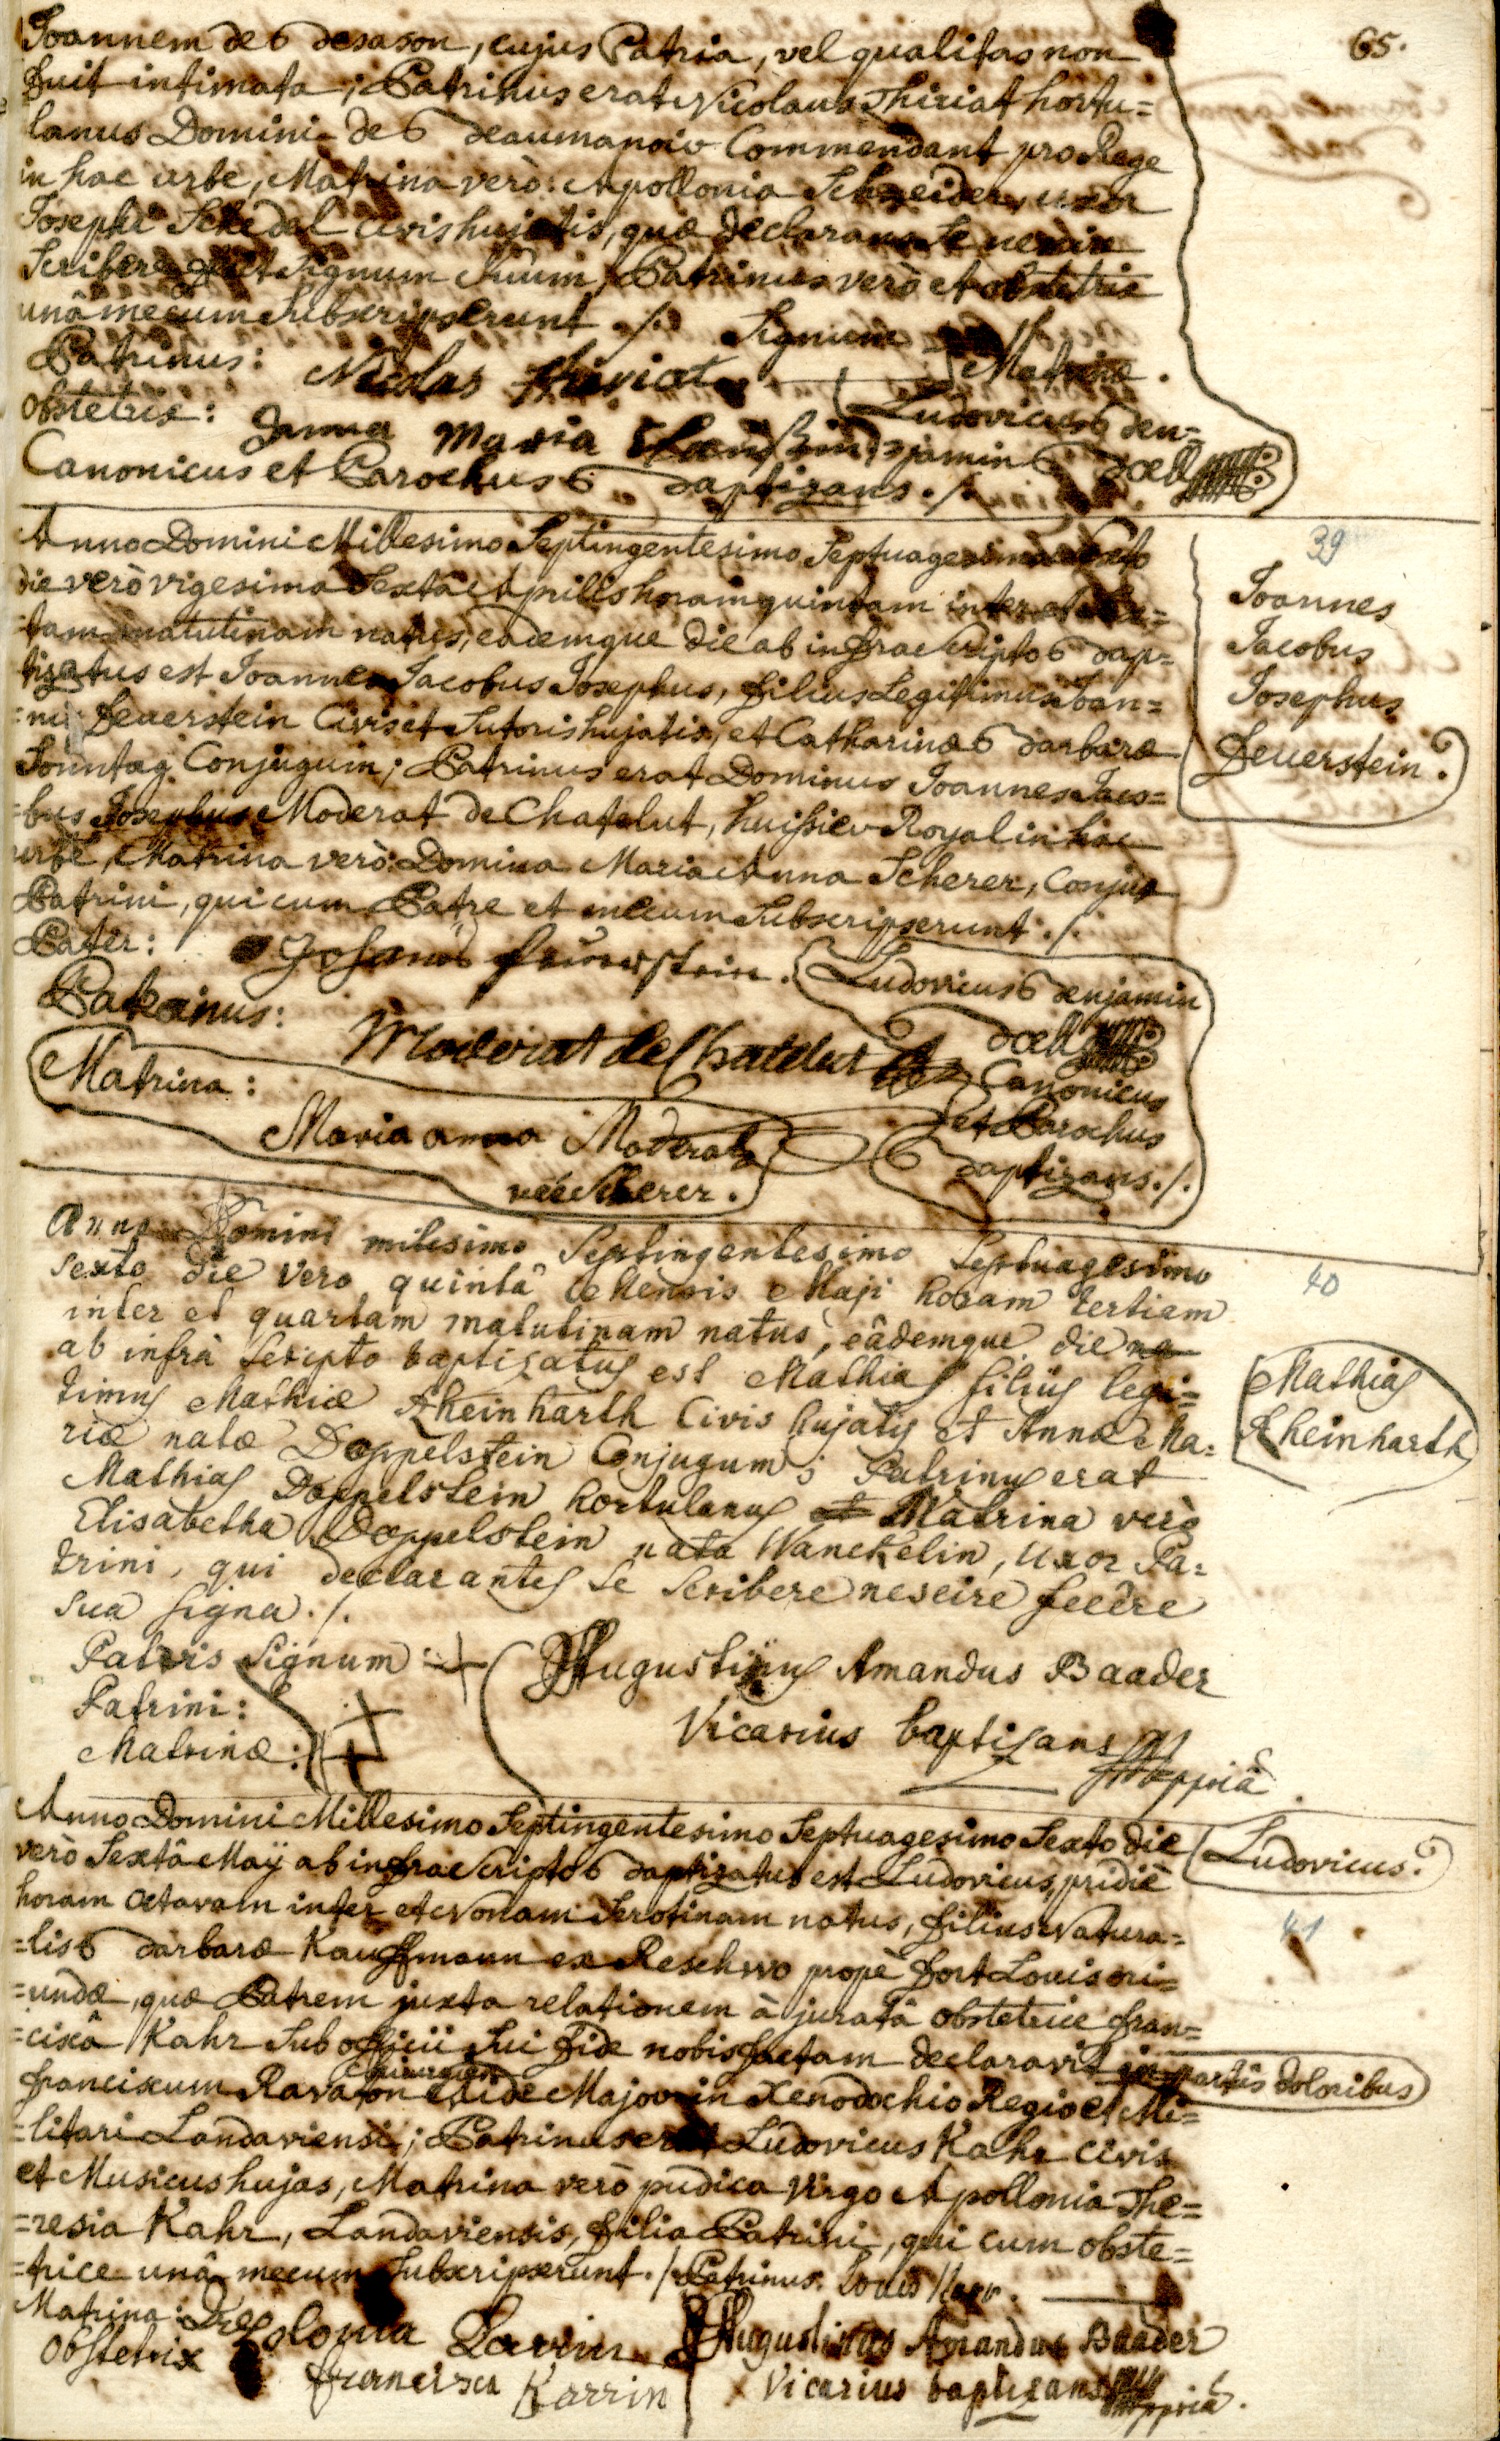 65.
Joannem de Besason, cujus Patria, vel qualitas non
fuit intimata; Patrinus erat Nicolaus Thiriat hortu=
lanus Domini de Beaumanoir Commendant pro Rege
in hac urbe, Matrina verò: Apollonia Schneider, uxor
Josephi Schedel civis hujatis, quæ declarans se nescire
scribere fecit signum suum, Patrinus verò et obstetrix
unâ mecum subscripserunt ./. Signum
Patrinus: Nicolas Thiriat Matrinæ.
Obstetrix: Anna Maria Ludovicus Ben=
jamin Doell
Canonicus et Parochus Baptizans ./.
39
Anno Domini Millesimo Septingentesimo Septuagesimo Sexto
die verò vigesimâ Sextâ Aprilis horam quintam inter et Sex=
=tam matutinam natus, eademque die ab infra Scripto Bap=
tizatus est Joannes Jacobus Josephus, filius Legitimus Joan=
=nis Feuerstein Civis et Sutoris hujatis, et Catharinæ Barbaræ
Sonntag Conjugum; Patrinus erat Dominus Joannes Jaco=
=bus Josephus Moderat de Chatelut, huissier Royal in hac
urbe, Matrina verò: Domina Maria Anna Scherer, Conjux
Patrini, qui cum Patre et mecum Subscripserunt ./.
Joannes
Jacobus
Josephus
Feuerstein.
Pater: Johannes Feuerstein.
Ludovicus Benjamin
Doell
Canonicus
et Parochus
Baptizans ./.
Patrinus: Moderat de Chatelut
Matrina:
Maria anna Moderat
née Scherer.
40
Anno Domini milesimo Septingentesimo Septuagesimo
sexto die vero quintâ Mensis Maji horam tertiam
inter et quartam matutinam natus, eâdemque die na
ab infrà scripto baptisatus est Mathias filius legi=
timus Mathiæ Rheinharth Civis hujatis et Annæ Ma=
riæ natæ Doppelstein Conjugum; Patrinus erat
Mathias Doppelstein hortulanus et Matrina verò
Elisabetha Doppelstein nata Wanckelin, uxor Pa=
trini, qui declarantes se scribere nescire fecêre
sua signa ./.
Mathias
Rheinharth
Patris signum: +
Patrini: +
Matrinæ: +
Augustinus Amandus Baader
Vicarius baptisans
mppriâ.
Anno Domini Millesimo Septingentesimo Septuagesimo Sexto die
verò Sextâ Maÿ ab infra Scripto Baptizatus est Ludovicus, pridiè
horam octavam inter et nonam Serotinam natus, filius Natura=
=lis Barbaræ Kauffmann ex Reschwo propè fort Louis ori=
=undæ, quæ Patrem juxta relationem à juratâ obstetrice fran=
=ciscâ Kahr Sub officii Sui fide nobis factam declaravit in partûs doloribus
franciscum Ravaton Chirurgien Aide Major in Xenodochio Regio et Mi=
=litari Landaviensi; Patrinus erat Ludovicus Kahr Civis
et Musicus hujas, Matrina verò pudica virgo Apollonia The=
=resia Kahr, Landaviensis, filia Patrini, qui cum obste=
=trice unâ mecum Subscripserunt ./. Patrinus: Louis
Ludovicus.
41
Matrina:
Obstetrix francisca Karrin
Augustinus Amandus Baader
Vicarius baptizans mppriâ.